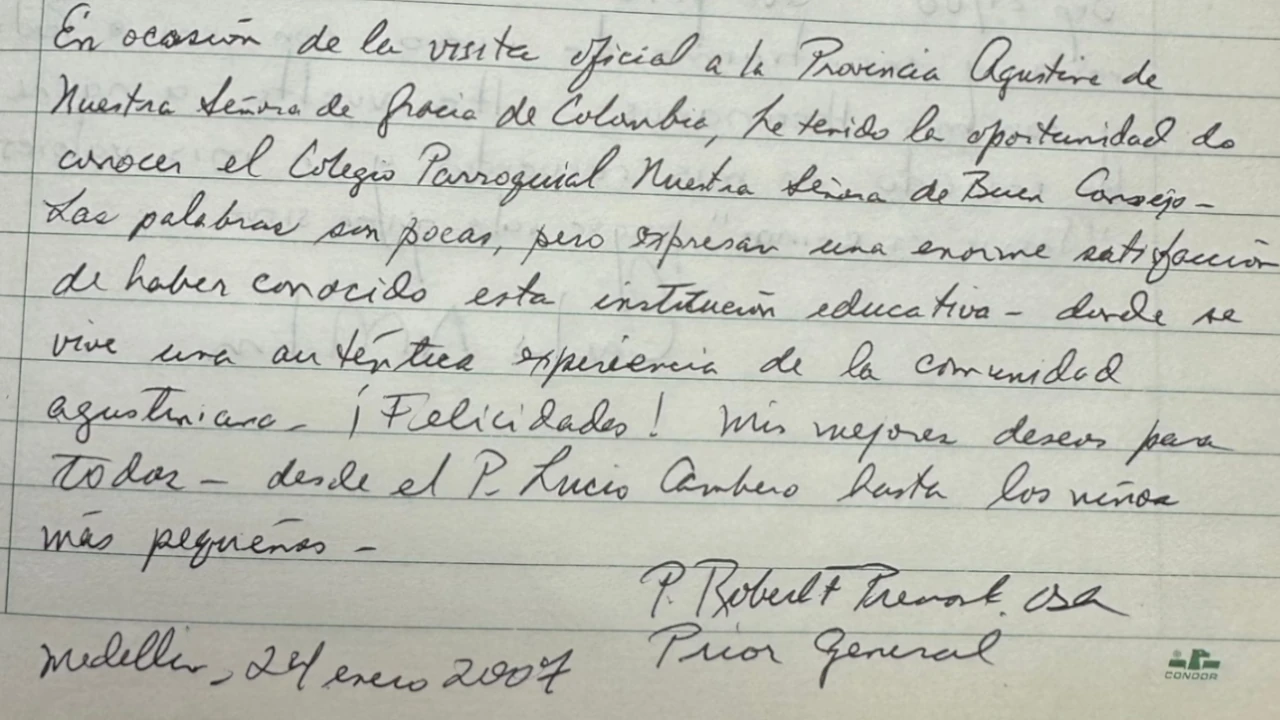 En ocasión de la visita oficial a la Provincia Agustina de
Nuestra Señora de Gracia de Colombia, he tenido la oportunidad de
conocer el Colegio Parroquial Nuestra Señora de Buen Consejo -
Las palabras son pocas, pero expresan una enorme satisfacción
de haber conocido esta institución educativa - donde se
vive una auténtica experiencia de la comunidad
agustiniana - ¡Felicidades! Mis mejores deseos para
todos - desde el P. Lucio Cambero hasta los niños
más pequeños -
P. Robert F Prevost, osa
Prior General
Medellín, 24 enero 2007
CONDOR